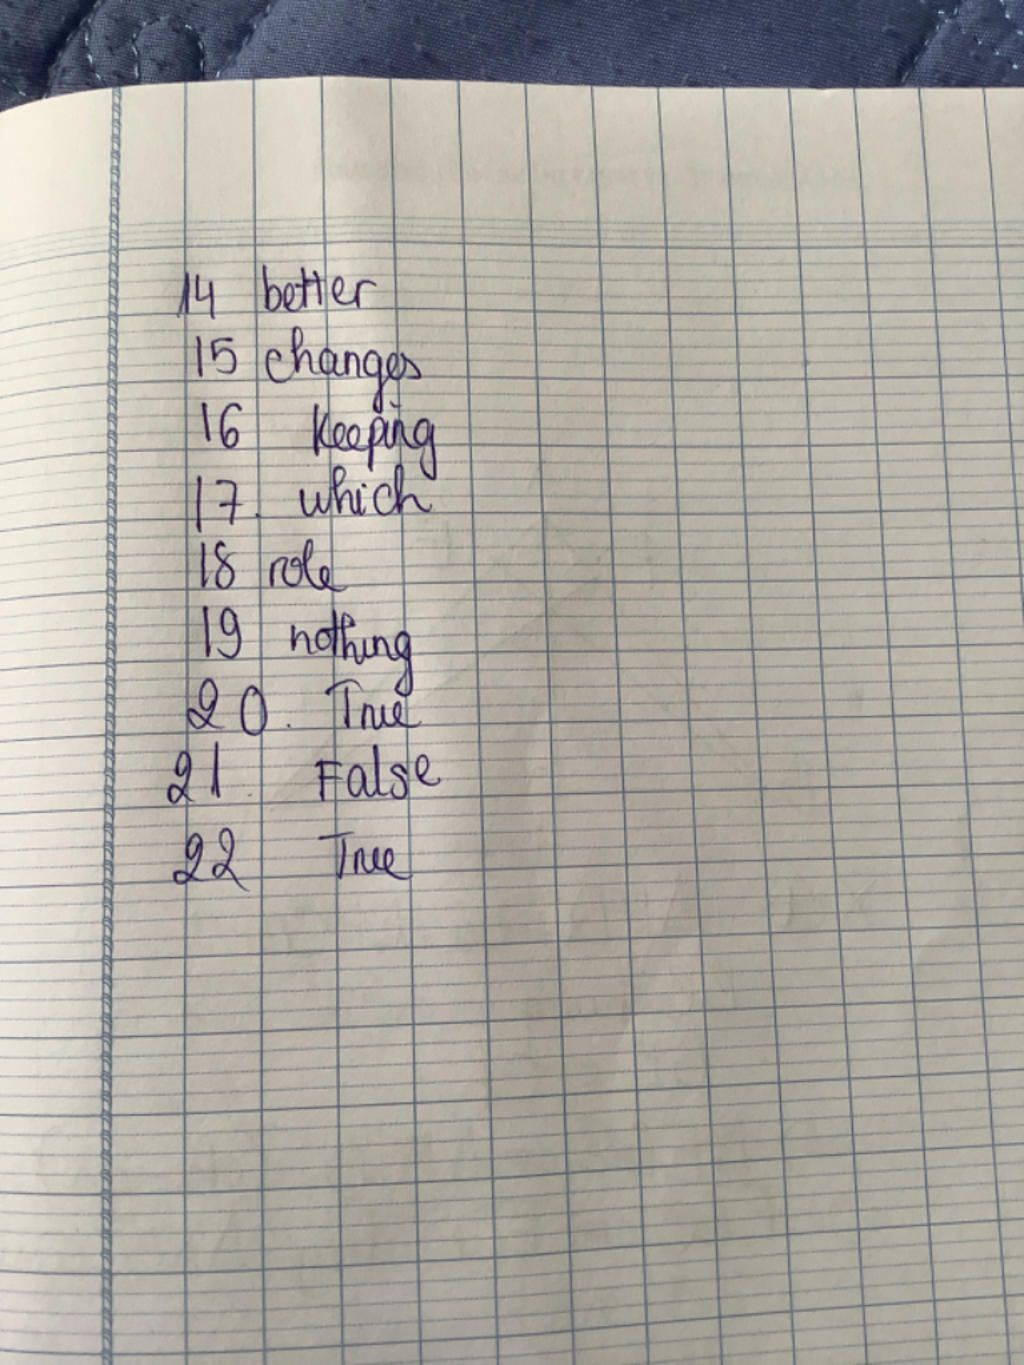 14 better
15 changes
16 Keeping
17. which
18 role
19 nothing
20. True
21. False
22 True